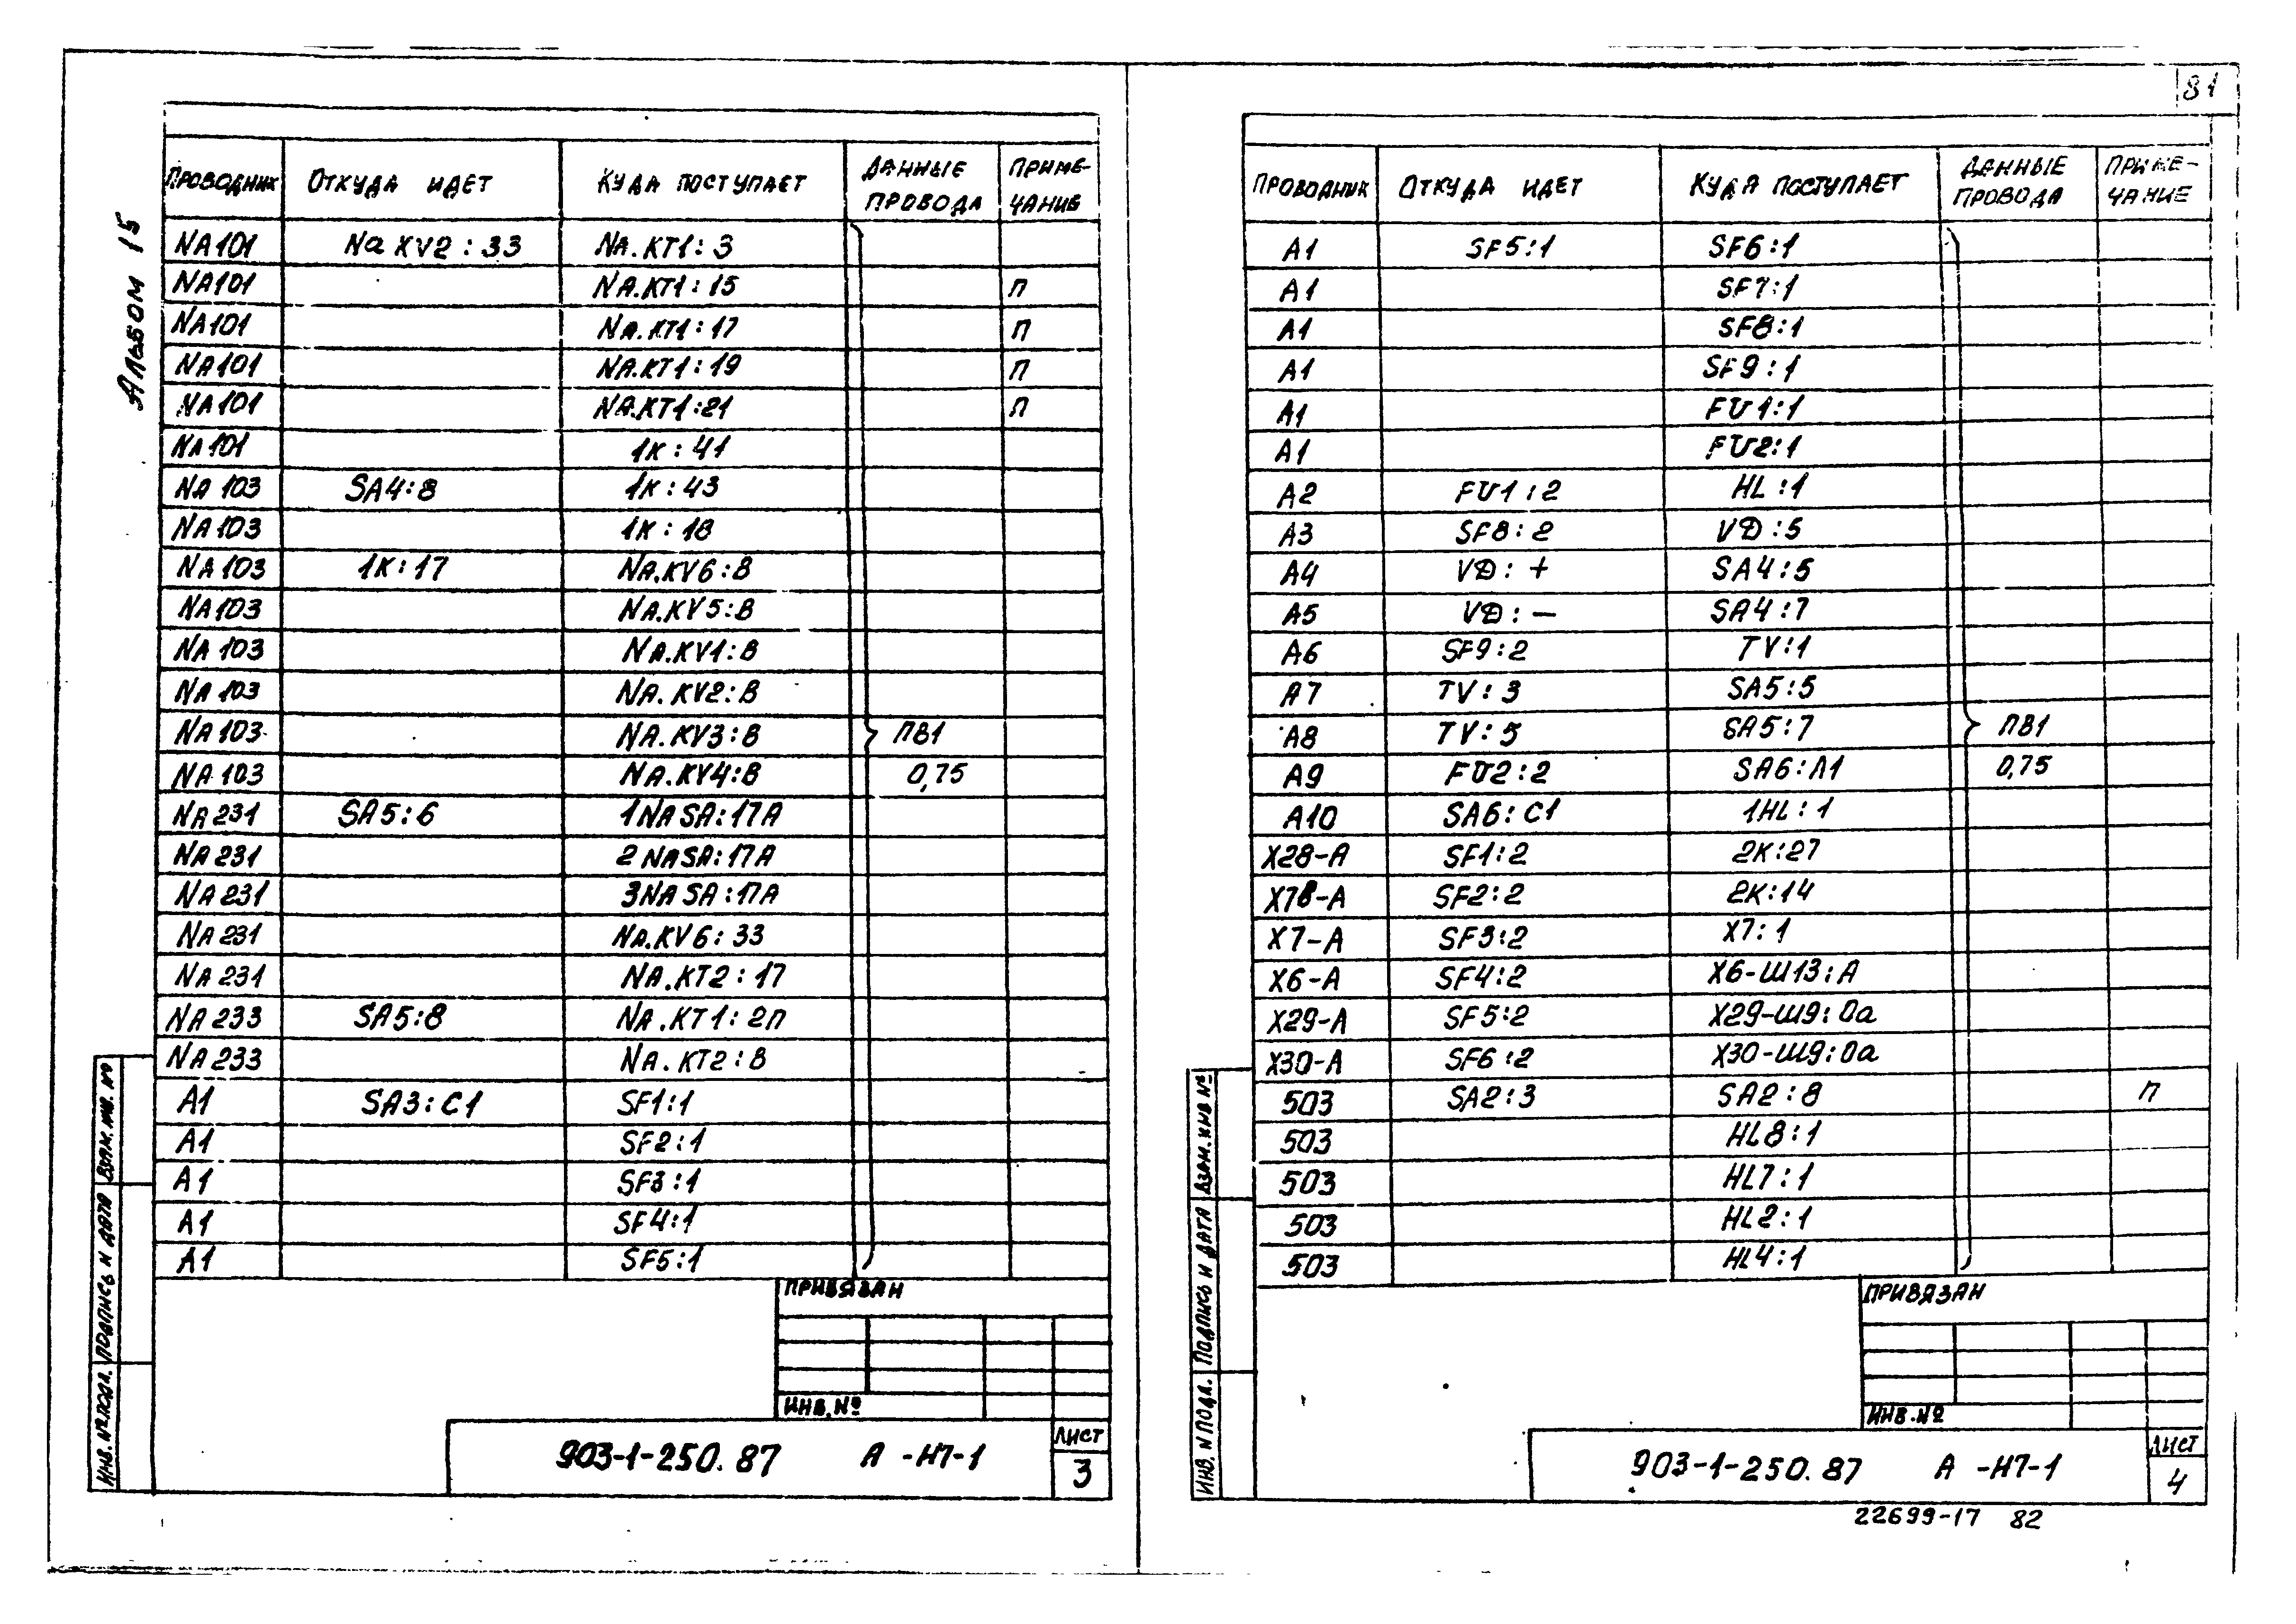 81
Альбом 15
Проводник Откуда идет Куда поступает Данные провода Примечание
NA101 Na XV2 : 33 NA.KT1 : 3
NA101 NA.KT1 : 15 п
NA101 NA.KT1 : 17 п
NA101 NA.KT1 : 19 п
NA101 NA.KT1 : 21 п
NA101 1K : 41
NA 103 SA4:8 1K : 43
NA103 1K : 18
NA 103 1K : 17 NA.KV6 : В
NA103 NA.KV5 : В
NA 103 NA.KV1 : В
NA 103 NA.KV2 : В
NA 103 NA.KV3 : В ПВ1
NA 103 NA.KV4 : В 0,75
NA 231 SA5:6 1NASA:17А
NA 231 2NASA:17А
NA 231 3NASA:17А
NA 231 NA.KV6 : 33
NA 231 NA.KT2 : 17
NA 233 SA5:8 NA.KT1 : 2п
NA 233 NA.KT2 : В
А1 SA3 : С1 SF1 : 1
А1 SF2 : 1
А1 SF3 : 1
А1 SF4 : 1
А1 SF5 : 1
Привязан
Инв. №
903-1-250.87 А -Н7-1
Лист
3
Инв. № подл. Подпись и дата Взам. инв. №
Проводник Откуда идет Куда поступает Данные провода Примечание
А1 SF5 : 1 SF6 : 1
А1 SF7 : 1
А1 SF8 : 1
А1 SF9 : 1
А1 FU1 : 1
А1 FU2 : 1
А2 FU1 : 2 HL : 1
А3 SF8 : 2 VD : 5
А4 VD : + SA4 : 5
А5 VD : — SA4 : 7
А6 SF9 : 2 TV : 1
А7 TV : 3 SA5 : 5
А8 TV : 5 SA5 : 7 ПВ1
А9 FU2 : 2 SA6 : Л1 0,75
А10 SA6 : С1 1HL : 1
Х28-А SF1 : 2 2K : 27
Х78-А SF2 : 2 2K : 14
Х7-А SF3 : 2 Х7 : 1
Х6-А SF4 : 2 Х6-Ш13 : А
Х29-А SF5 : 2 Х29-Ш9 : 0а
Х30-А SF6 : 2 Х30-Ш9 : 0а
503 SA2 : 3 SA2 : 8 п
503 HL8 : 1
503 HL7 : 1
503 HL2 : 1
503 HL4 : 1
Привязан
Инв. №
903-1-250.87 А -Н7-1
Лист
4
Инв. N подл. Подпись и дата Взам. инв №
22699-17 82